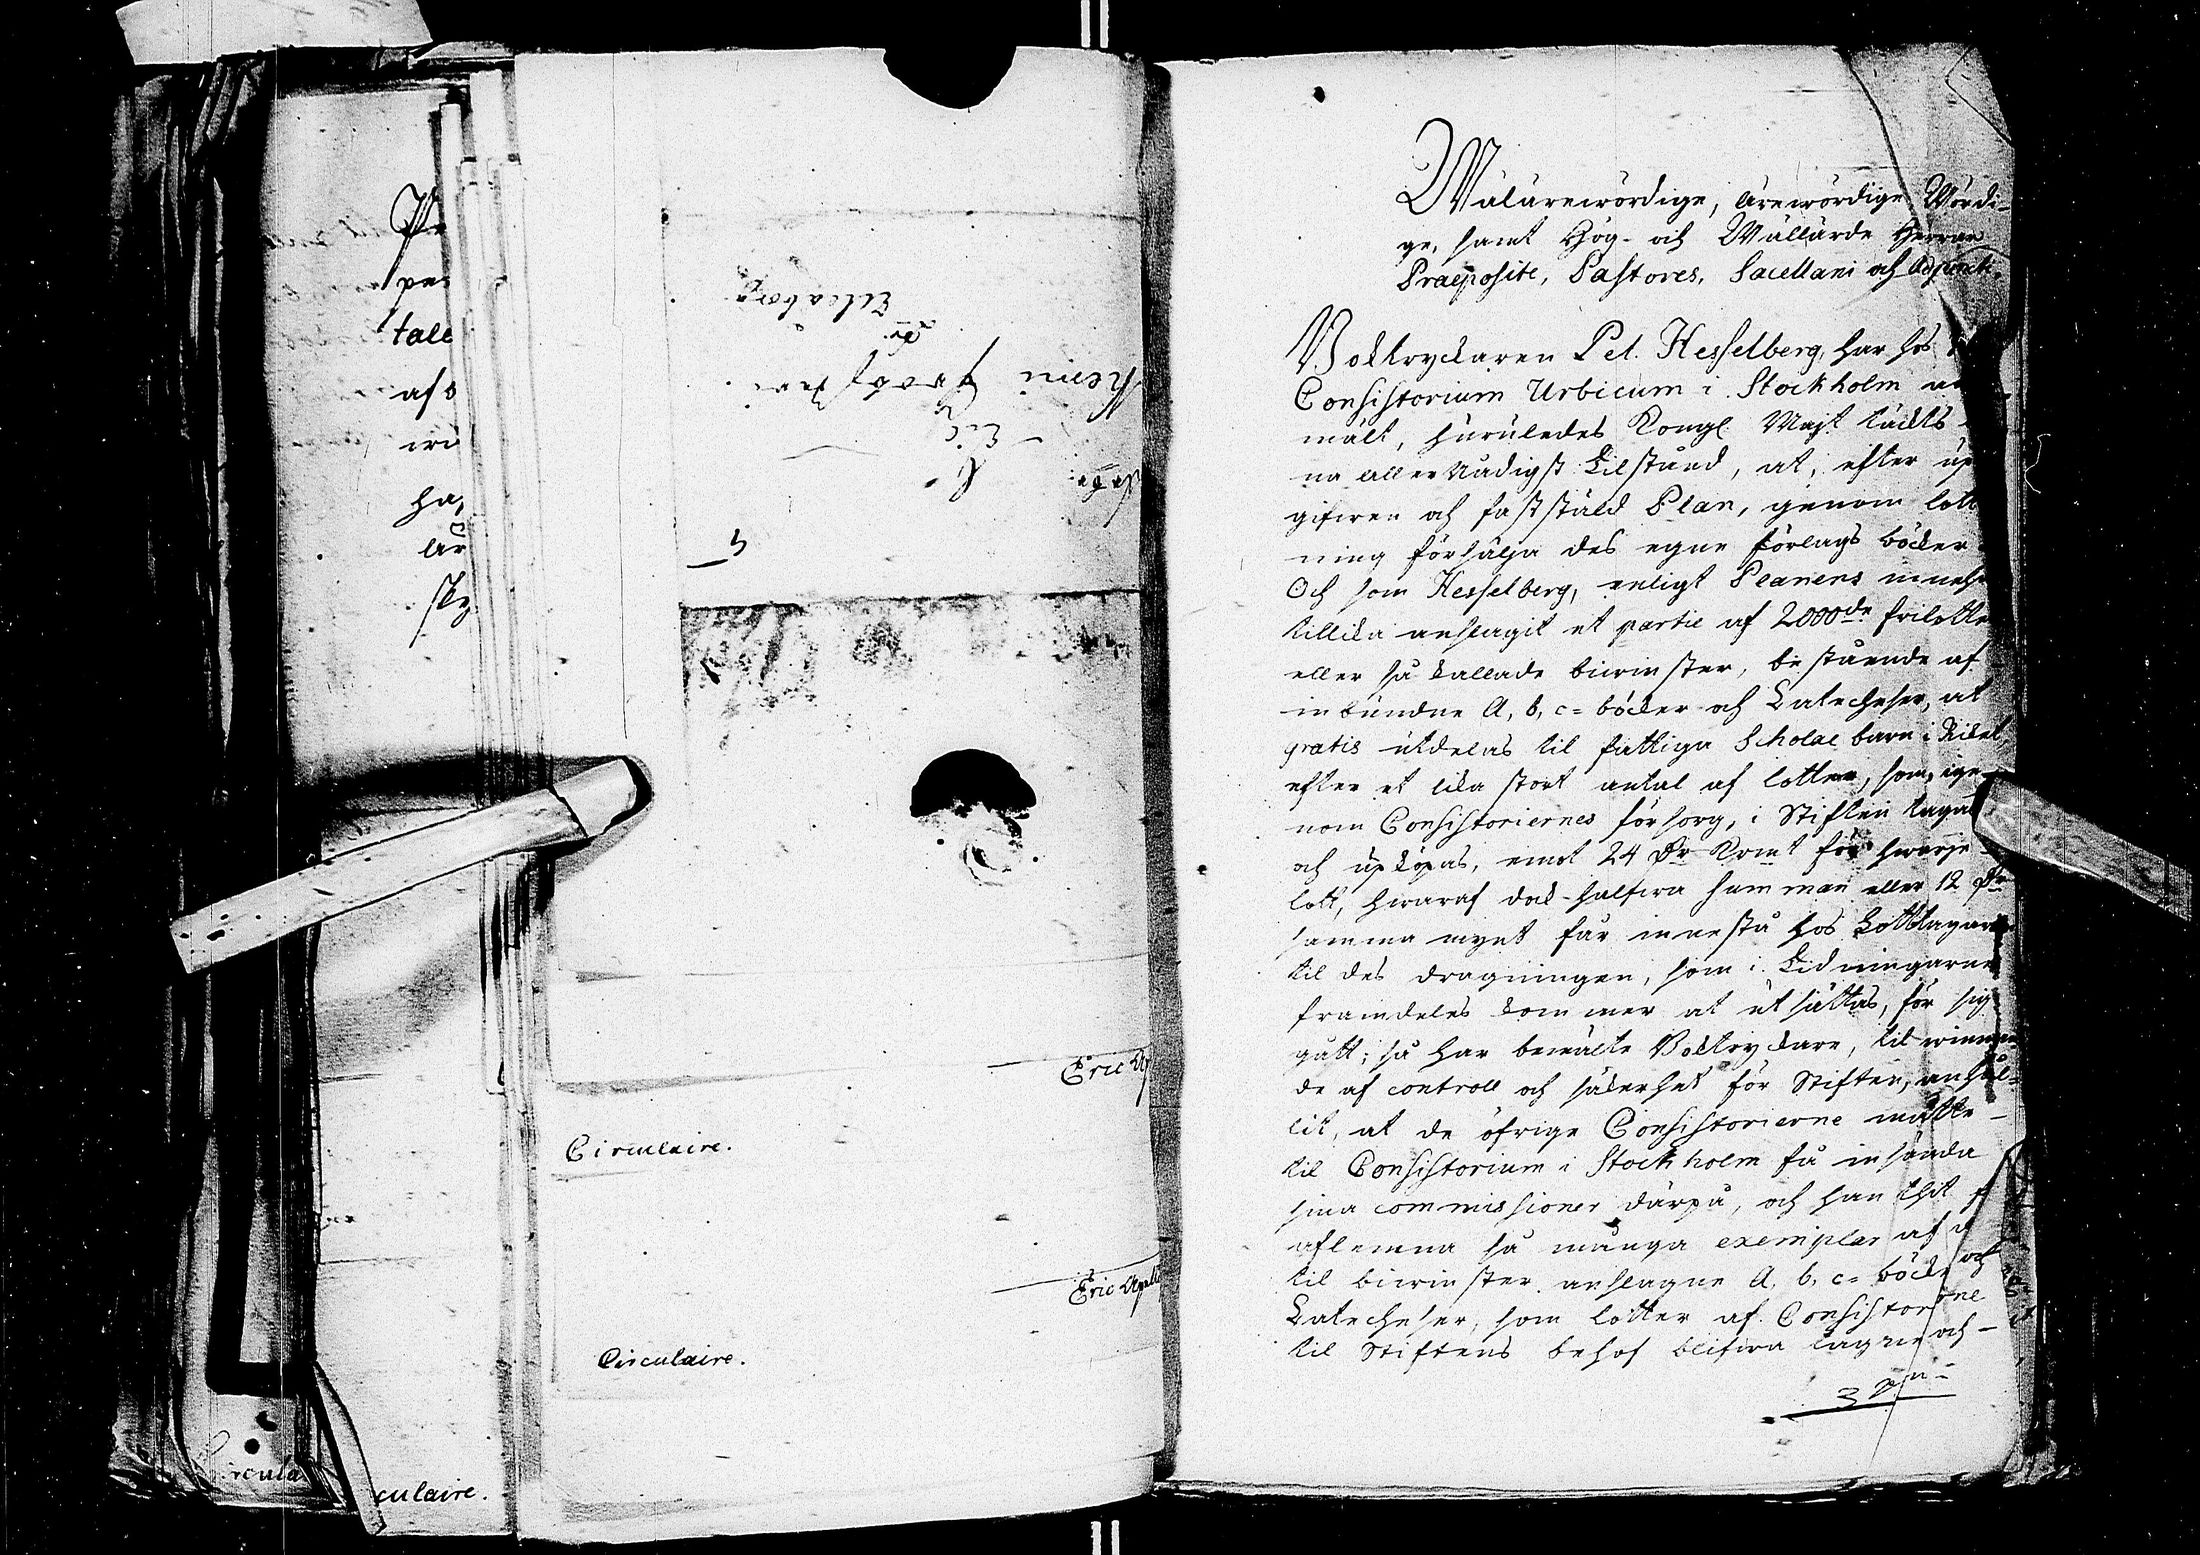 Circulaire.
Circulaire.
culaire.
Eric
Eric
tale
Wälärewördige, ärewördige Wördi-
ge, samt Hög- och Wällärde Herrar
Praeposite, Pastores, Sacellani och Adjuncti.
Boktryckaren Pet. Hesselberg, har hos
Consistorium Urbicum i Stockholm an
mält, huruledes Kongl. Majt täckts
na allernådigst tilstånd, at, efter up
gifwen och faststäld Plan, genom lott
ning försälja des egne förlags böcker
Och som Hesselberg, enligt Planens inneh
tillika anslagit et partie af 2000de frilotter
eller så kallade biwinster, bestående af
inbundne A, b, c= böcker och Catecheser, at
gratis utdelas til fattiga Scholae barn i Riket,
efter et lika stort antal af lotter, som, ige-
nom Consistoriernes försorg, i Stiften tagas
och upköpas, emot 24 Dr Kpmt för hwarje
lott, hwaraf dock halfwa summan eller 12 Dr
samma mynt får innestå hos Lotttagare
til des dragningen, som i Tidningarne
framdeles kommer at utsättas, för sig
gått; så har bemälte Boktryckare, til winnan
de af controll och säkerhet för Stiften, anhål-
lit, at de öfrige Consistorierne måtte
til Consistorium i Stockholm få insända
sina commissioner därpå, och han thit
aflemna så många exemplar af d
til biwinster anslagne A, b, c= böcker och
Catecheser, som lotter af Consistorierne
til Stiftens behof blifwa tagne och